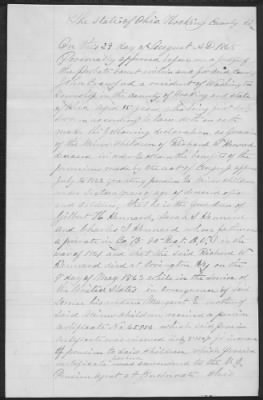 The State of Ohio Hocking County SS
On this 23 day of August A.D. 186
Personally appeared before me a Judge of
the Probate Court within and for said County
John Crawford a resident of Washington
Township in the county of Hocking and state
of Ohio aged 45 years, who being first duly
sworn according to Law doth on oath
make the following declaration as Guardian
of the Minor children of Richard W. Kennard
deceased in order to obtain the benefits of the
provisions made by the act of Congress approved
July 14 1862 granting pensions to minor children
under sixteen years of age of deceased officers
and soldiers, that he is the Guardian of
Gilbert H Kennard, Sarah S Kennard
and Charles S Kennard whose father was
a private in Co B. Regt O.V.I. in the
war of 1861 and that the said Richard W.
Kennard died at Covington Ky on the
7 day of May 186 while in the service of
the United States in consequence of
his widow Margaret E mother of
said Minor children received a pension
certificate No 65304 which said pension
certificate was
of pension to said children, which pension
certificate was annexed to the U.S.
Pension Agent at Cincinnati Ohio